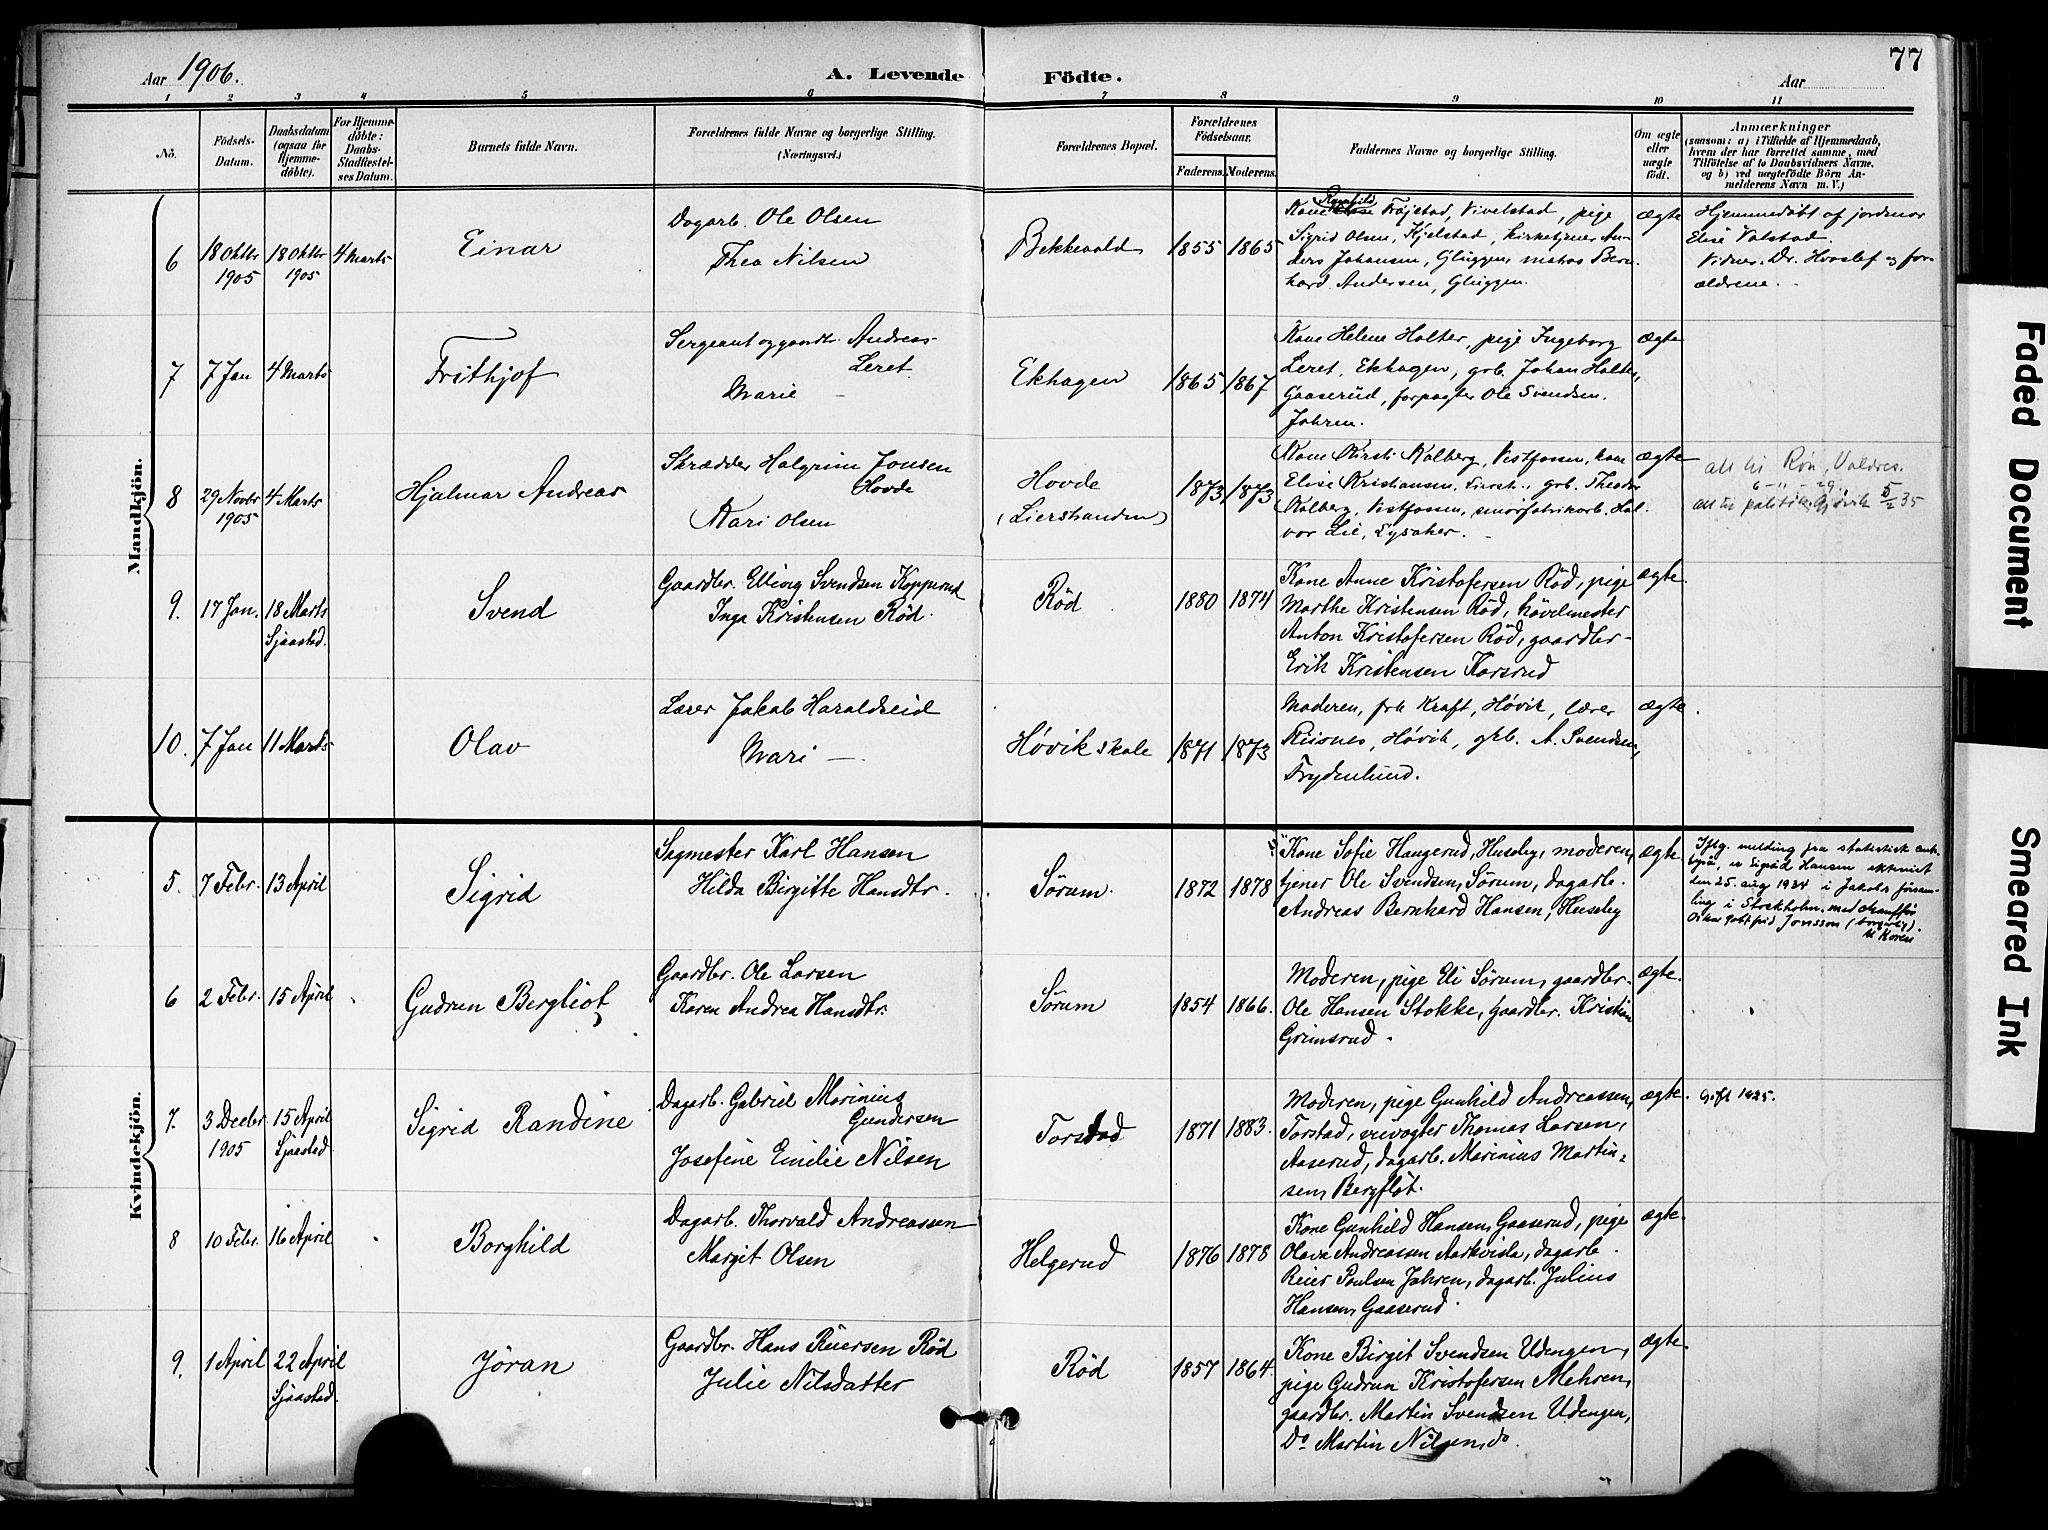 77
Aar 1906.
A. Levende Födte.
Aar
1 2 3 4 5 6 7 8 9 10 11
No.
Födsels-Datum.
Daabsdatum (ogsaa for Hjemmedöbte).
For Hjemmedöbte: Daabs-Stadfæstelses Datum.
Barnets fulde Navn.
Forældrenes fulde Navne og borgerlige Stilling.
(Næringsvei.)
Forældrenes Bopæl.
Forældrenes Födselsaar.
Faderens. Moderens.
Faddernes Navne og borgerlige Stilling.
Om ægte eller uægte födt.
Anmærkninger
(saasom: a) i Tilfælde af Hjemmedaab, hvem der har forrettet samme, med Tilföielse af to Daabsvidners Navne, og b) ved uægtefödte Börn Anmelderens Navn m. V.)
Mandkjön.
6
18 Oktbr 1905
18 Oktbr 1905
4 Marts
Einar
Dagarb. Ole Olsen
Thea Nilsen
Bekkevold
1855
1865
Kone Ragnhild Trøjstad, Vivelstad, pige
Sigrid Olsen, Kjelstad, kirketjener An-
ders Johansen, Gluggen, matros Bern-
hard Andersen, Gluggen.
ægte
Hjemmedøbt af jordmor
Elise Valstad.
Vidner: Dr. Hvoslef og for-
ældrene.
7
7 Jan
4 Marts
Frithjof
Sergeant og gaardbr. Andreas
Leret
Marie —
Ekhagen
1865
1867
Kone Helene Holter, pige Ingeborg
Leret, Ekhagen, grb. Johan Holter,
Gaaserud, forpagter Ole Svendsen.
Jahren.
ægte
8
29 Novbr 1905
4 Marts
Hjalmar Andreas
Skrædder Halgrim Jonsen
Hovde
Kari Olsen
Hovde
(Lierstranden)
1873
1873
Kone Kirsti Kalberg, Vestfossen, kone
Elise Kristiansen, Lierstr., grb. Theodor
Kalberg, Vestfossen, smörfabrikarb. Hal-
vor Lie, Lysaker.
ægte
att til Røn, Valdres.
6 -"- 29
att til politik. Gjøvik 5/2 35
9.
17 Jan.
18 Marts
Sjaastad.
Svend
Gaardbr. Elling Svendsen Kopperud
Inga Kristensen Röd.
Röd
1880
1874
Kone Anne Kristofersen Röd, pige
Marthe Kristensen Röd, hövelmester
Anton Kristofersen Röd, gaardbr-
Erik Kristensen Korsrud
ægte.
10.
7 Jan
11 Marts
Olav
Lærer Jakob Haraldseid
Mari —
Høvik skole
1871
1873
Moderen, frk Kraft, Høvik, lærer
Riisnes, Høvik, grb. A. Svendsen,
Frydenlund.
ægte.
Kvindekjön.
5.
7 Febr.
13 April
Sigrid
Sagmester Karl Hansen
Hilda Birgitte Hansdtr.
Sörum.
1872
1878
Kone Sofie Haugerud, Huseby, moderen,
tjener Ole Svendsen, Sörum, dagarb.
Andreas Bernhard Hansen, Huseby
ægte
Iflg. melding fra statistisk sent.
byrå, er Sigrid Hansen ekteviet
den 25. aug 1934 i Jakobs församling
i Stockholm, med chaufför
Oskar Gottfrid Jonsson (borgerlig).
H Koren
6
2 Febr.
15 April
Gudrun Bergliot
Gaardbr. Ole Larsen
Karen Andrea Hansdtr.
Sörum
1854
1866.
Moderen, pige Eli Sörum, gaardbr.
Ole Hansen Stokke, gaardbr. Kristian
Grimsrud.
ægte.
7.
3 Decbr 1905
15 April
Sjaastad
Sigrid Randine
Dagarb. Gabriel Marinius
Gundersen
Josefine Emilie Nilsen
Torstad
1871
1883.
Moderen, pige Gunhild Andreassen,
Torstad, veivogter Thomas Larsen,
Aaserud, dagarb. Marinius Martin-
sen, Bergflöt.
ægte.
Gift 1925.
8
10 Febr.
16 April
Borghild
Dagarb. Thorvald Andreassen
Margit Olsen
Helgerud
1876
1878
Kone Gunhild Hansen, Gaaserud, pige
Olava Andreassen Aarkvisla, dagarb.
Reier Poulsen Jahren, dagarb. Julius
Hansen, Gaaserud.
ægte.
9.
1 April
22 April
Sjaastad.
Jöran
Gaardbr. Hans Reiersen Röd
Julie Nilsdatter
Röd
1857
1864.
Kone Birgit Svendsen Udengen,
pige Gudrun Kristofersen Mehren,
gaardbr. Martin Svendsen Udengen,
Do Martin Nilsen, do.
ægte.
Faded Document
Smeared Ink